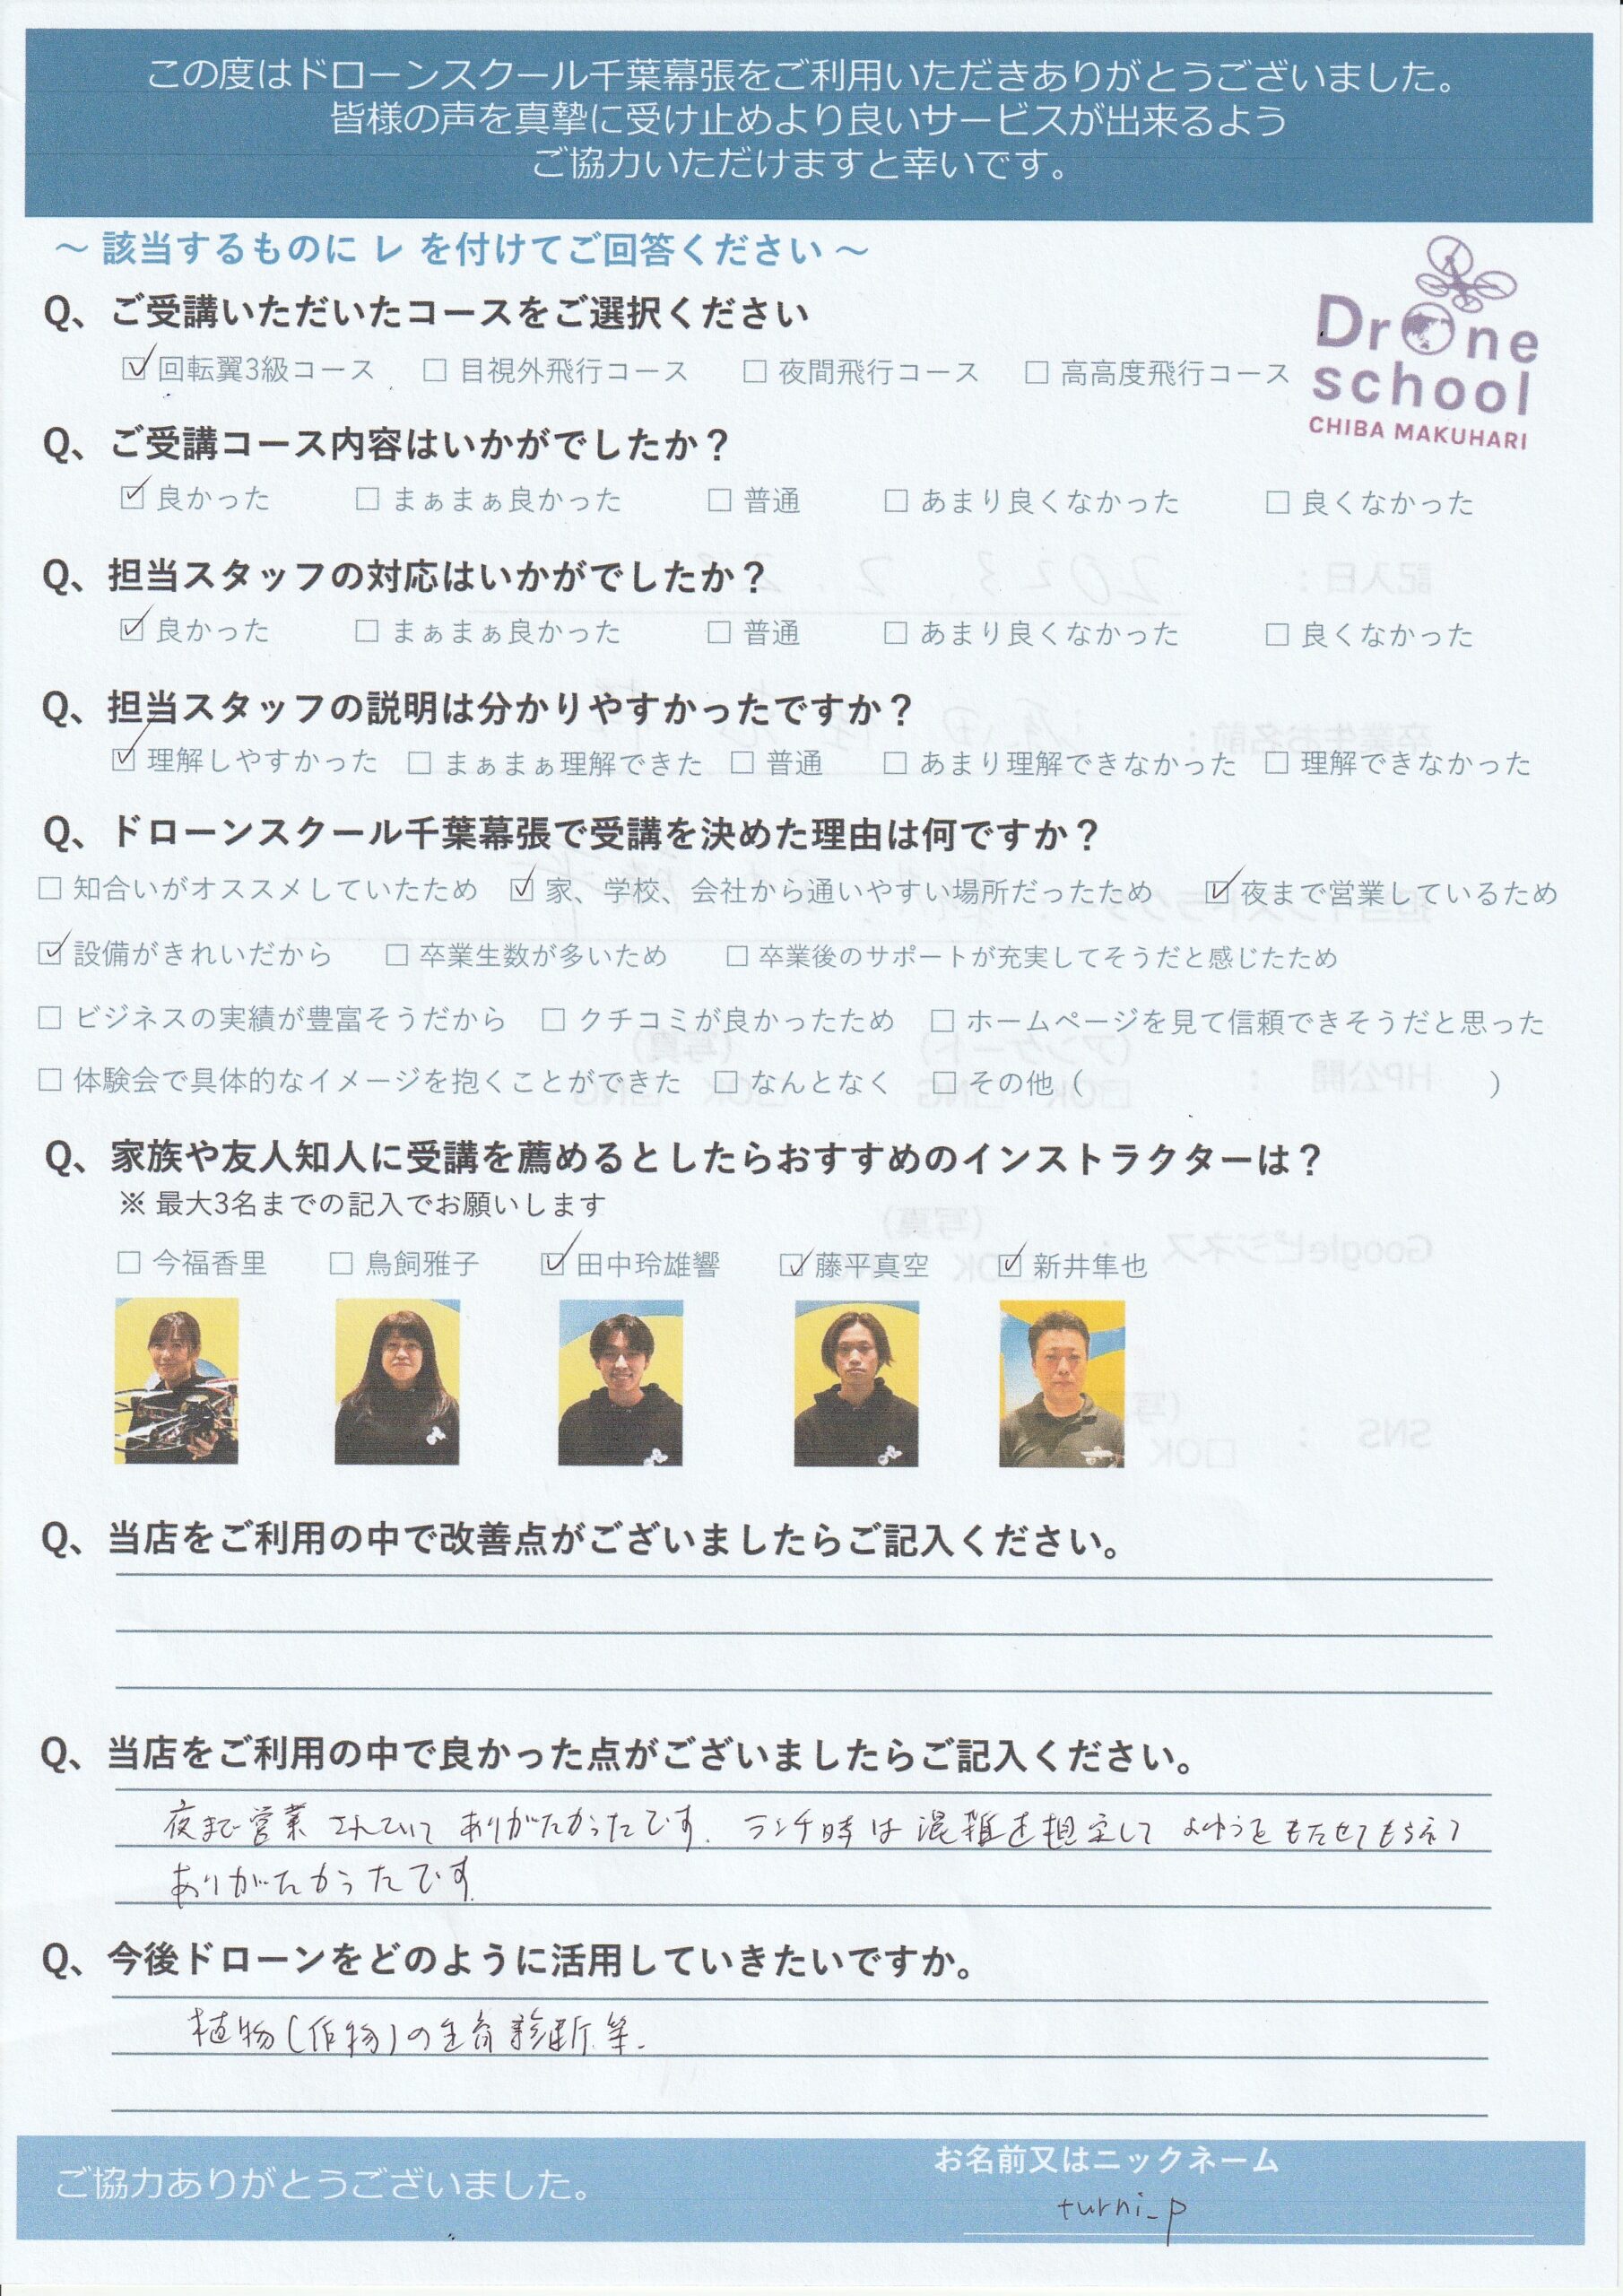 この度はドローンスクール千葉幕張をご利用いただきありがとうございました。
皆様の声を真摯に受け止めより良いサービスが出来るよう
ご協力いただけますと幸いです。
～ 該当するものに レ を付けてご回答ください ～
Drone
school
CHIBA MAKUHARI
Q、ご受講いただいたコースをご選択ください
☑ 回転翼3級コース □ 目視外飛行コース □ 夜間飛行コース □ 高高度飛行コース
Q、ご受講コース内容はいかがでしたか？
☑ 良かった □ まぁまぁ良かった □ 普通 □ あまり良くなかった □ 良くなかった
Q、担当スタッフの対応はいかがでしたか？
☑ 良かった □ まぁまぁ良かった □ 普通 □ あまり良くなかった □ 良くなかった
Q、担当スタッフの説明は分かりやすかったですか？
☑ 理解しやすかった □ まぁまぁ理解できた □ 普通 □ あまり理解できなかった □ 理解できなかった
Q、ドローンスクール千葉幕張で受講を決めた理由は何ですか？
□ 知合いがオススメしていたため ☑ 家、学校、会社から通いやすい場所だったため ☑ 夜まで営業しているため
☑ 設備がきれいだから □ 卒業生数が多いため □ 卒業後のサポートが充実してそうだと感じたため
□ ビジネスの実績が豊富そうだから □ クチコミが良かったため □ ホームページを見て信頼できそうだと思った
□ 体験会で具体的なイメージを抱くことができた □ なんとなく □ その他（ ）
Q、家族や友人知人に受講を薦めるとしたらおすすめのインストラクターは？
※ 最大3名までの記入でお願いします
□ 今福香里 □ 鳥飼雅子 ☑ 田中玲雄響 ☑ 藤平真空 ☑ 新井隼也
Q、当店をご利用の中で改善点がございましたらご記入ください。
Q、当店をご利用の中で良かった点がございましたらご記入ください。
夜まで営業されていて ありがたかったです. ランチ時は混雑を想定して よゆうを もたせてもらえて
ありがたかったです.
Q、今後ドローンをどのように活用していきたいですか。
植物(作物)の生育診断等.
ご協力ありがとうございました。
お名前又はニックネーム
turni_p